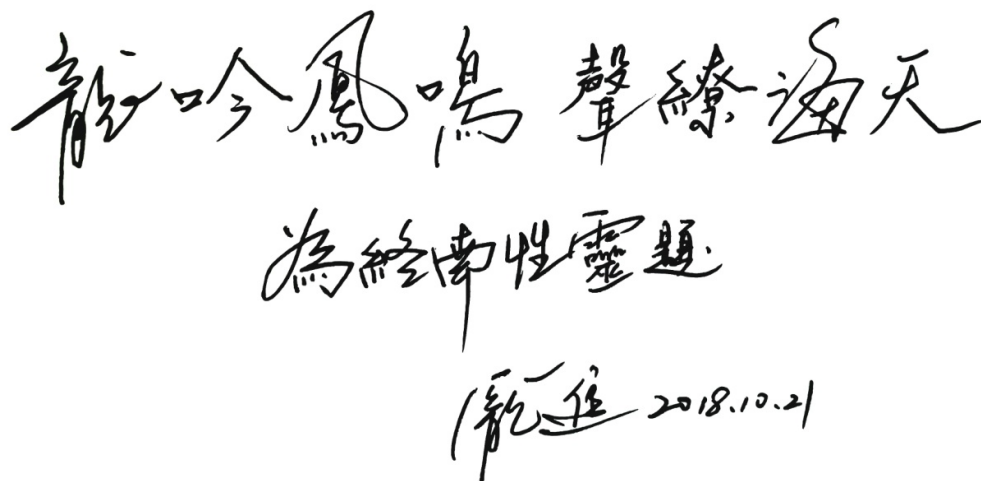 龍吟鳳鳴 聲繚海天
為終南性靈題
龐進 2018.10.21